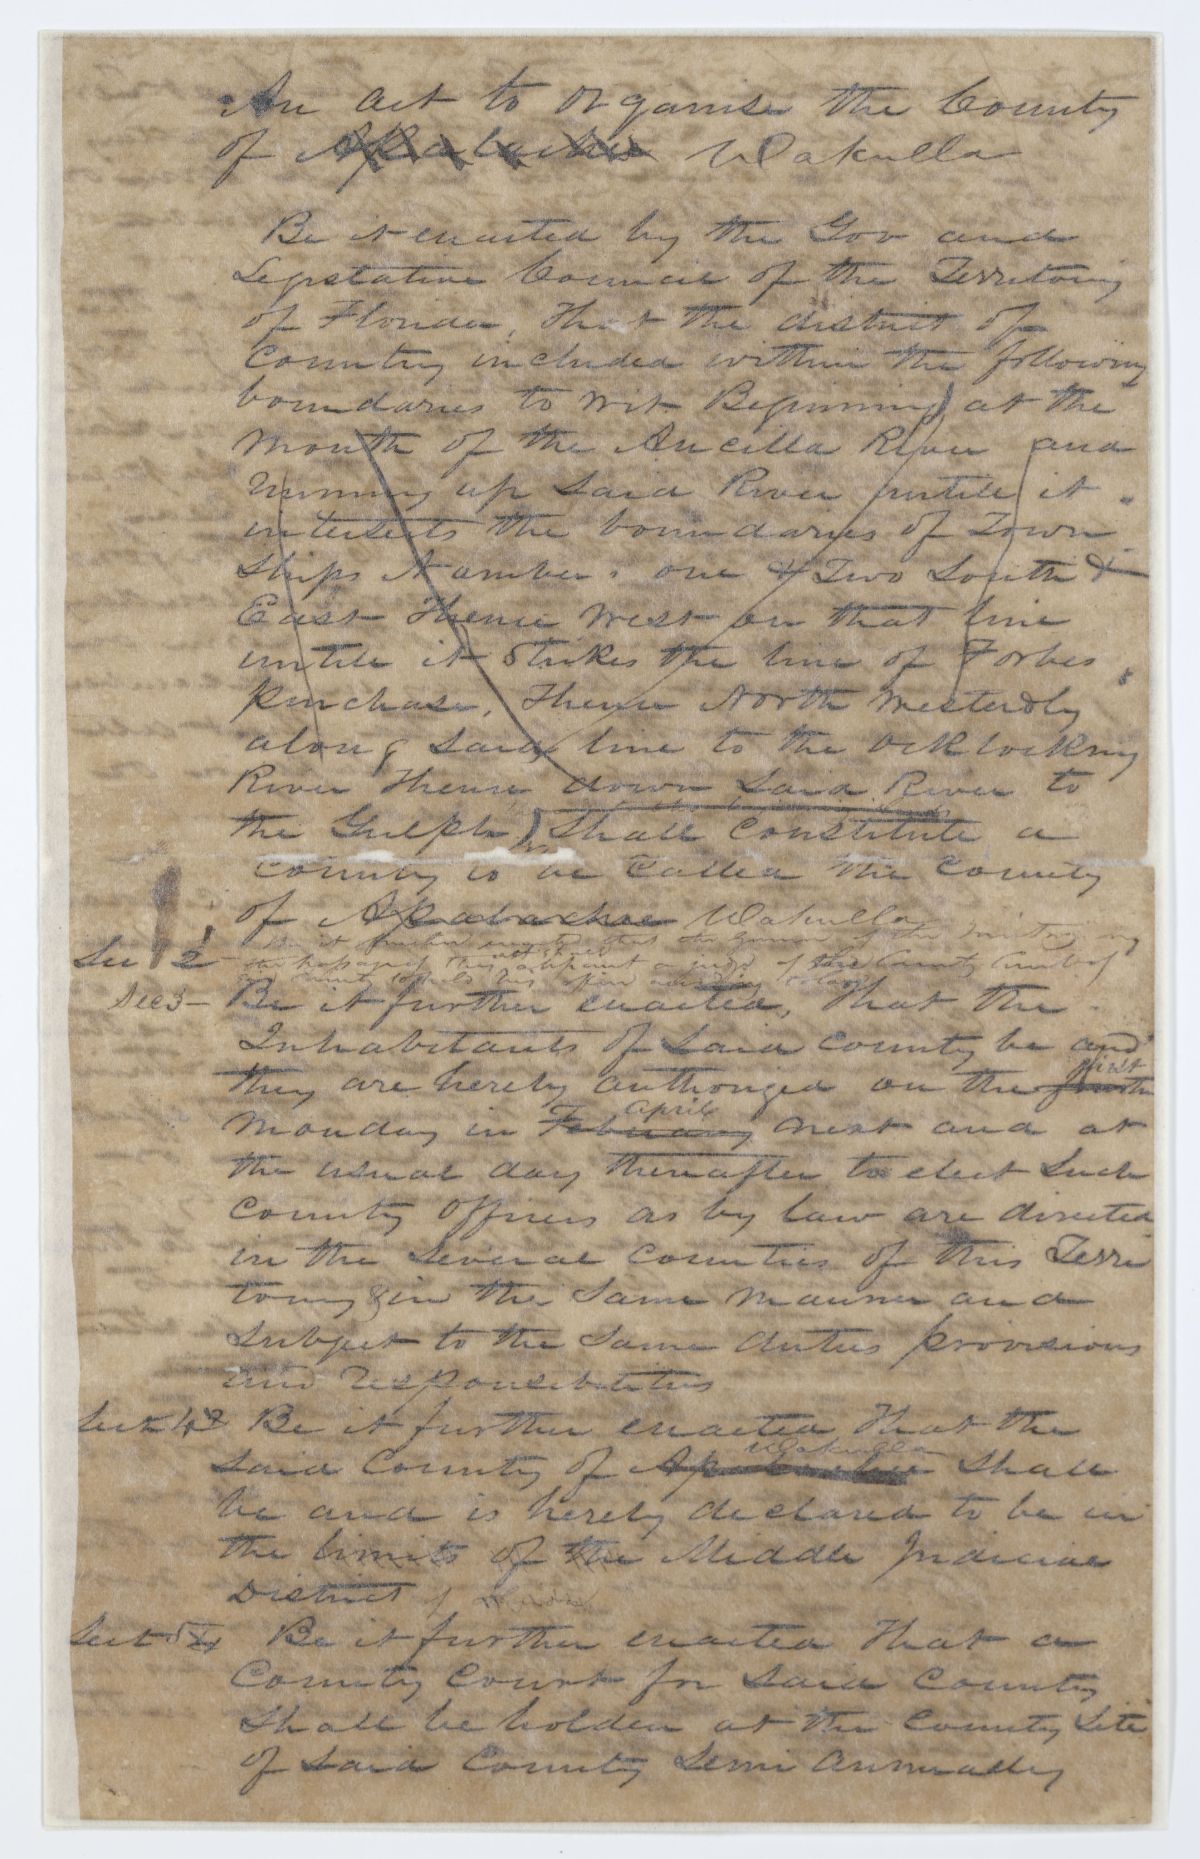 An act to organise the County
of Apalachie Wakulla
Be it enacted by the Gov and
Legislative Council of the Territory
of Florida, That the district of
Country included within the following
boundaries to wit Beginning at the
mouth of the Aucilla River and
running up said River untill it
intersects the boundaries of Town
Ships Number one & Two South &
East Thence West on that line
untill it Strikes the line of Forbes
purchase, Thence North Westerdly
along said line to the Ocklockny
River Thence down said River to
the Gulph, Shall constitute a
county to be Called the County
of Apalachie Wakulla
Sec 2 Be it further enacted that the Governor of the Territory
the passage of this act appoint a judge of the County Court of
said County to hold his office according to law
Sec 3 Be it further enacted, That the
Inhabitants of said county be and
first
they are hereby authorized on the fourth
April
Monday in February next and at
the usual day thereafter to elect such
County Officers as by law are directed
in the several counties of this Terri
tory & in the same manner and
subject to the same duties provisions
and responsibilities
Sect 4 Be it further enacted That the
Wakulla
said County of Apalachie shall
be and is hereby declared to be in
the limits of the Middle Judicial
District of
Sect 5 Be it further enacted That a
County Court for said County
shall be holden at the County Site
of said County Semi Annually